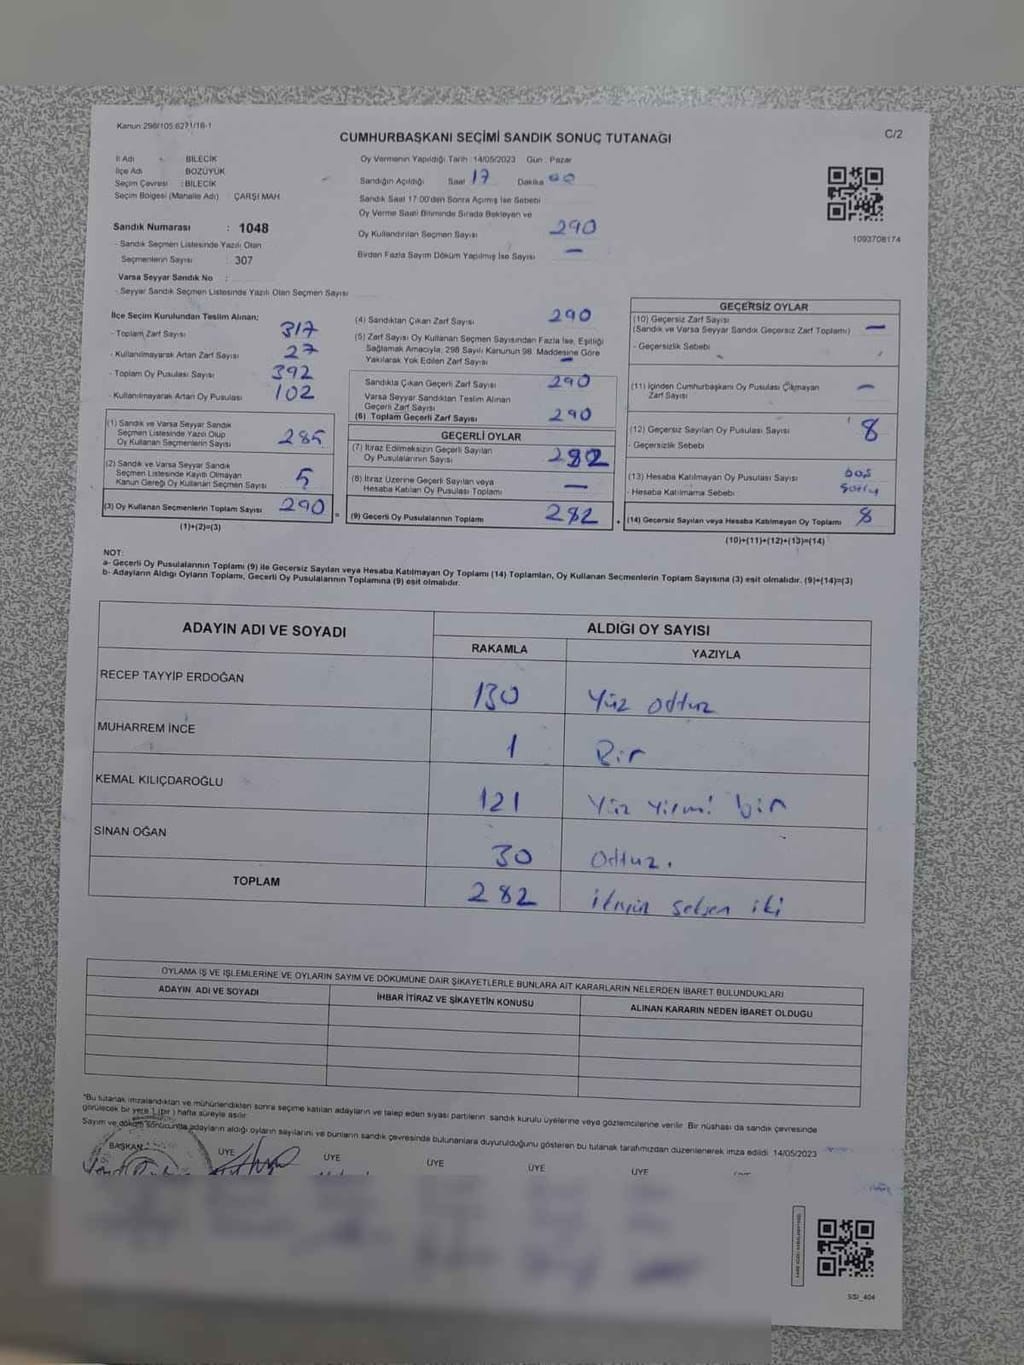 Kanun 298/105 6271/16-1
C/2
CUMHURBAŞKANI SEÇİMİ SANDIK SONUÇ TUTANAĞI
İl Adı BİLECİK
İlçe Adı BOZÜYÜK
Seçim Çevresi : BİLECİK
Seçim Bölgesi (Mahalle Adı) ÇARŞI MAH
Oy Vermenin Yapıldığı Tarih : 14/05/2023 Gün : Pazar
Sandığın Açıldığı Saat 17 Dakika 00
Sandık Saat 17:00'den Sonra Açımış İse Sebebi
Oy Verme Saati Bitiminde Sırada Bekleyen ve
Oy Kullandırılan Seçmen Sayısı 290
Birden Fazla Sayım Döküm Yapılmış İse Sayısı —
1093708174
Sandık Numarası : 1048
- Sandık Seçmen Listesinde Yazılı Olan
Seçmenlerin Sayısı : 307
Varsa Seyyar Sandık No :
- Seyyar Sandık Seçmen Listesinde Yazılı Olan Seçmen Sayısı
İlçe Seçim Kurulundan Teslim Alınan:
- Toplam Zarf Sayısı 317
- Kullanılmayarak Artan Zarf Sayısı 27
- Toplam Oy Pusulası Sayısı 392
- Kullanılmayarak Artan Oy Pusulası 102
(1) Sandık ve Varsa Seyyar Sandık
Seçmen Listesinde Yazılı Olup
Oy Kullanan Seçmenlerin Sayısı 285
(2) Sandık ve Varsa Seyyar Sandık
Seçmen Listesinde Kayıtlı Olmayan
Kanun Gereği Oy Kullanan Seçmen Sayısı 5
(3) Oy Kullanan Seçmenlerin Toplam Sayısı 290
(1)+(2)=(3)
(4) Sandıktan Çıkan Zarf Sayısı 290
(5) Zarf Sayısı Oy Kullanan Seçmen Sayısından Fazla İse, Eşitliği
Sağlamak Amacıyla, 298 Sayılı Kanunun 98. Maddesine Göre
Yakılarak Yok Edilen Zarf Sayısı —
Sandıkta Çıkan Geçerli Zarf Sayısı 290
Varsa Seyyar Sandıktan Teslim Alınan
Geçerli Zarf Sayısı
(6) Toplam Geçerli Zarf Sayısı 290
GEÇERLİ OYLAR
(7) İtiraz Edilmeksizin Geçerli Sayılan
Oy Pusulalarının Sayısı 282
(8) İtiraz Üzerine Geçerli Sayılan veya
Hesaba Katılan Oy Pusulası Toplamı —
(9) Geçerli Oy Pusulalarının Toplamı 282
GEÇERSİZ OYLAR
(10) Geçersiz Zarf Sayısı
(Sandık ve Varsa Seyyar Sandık Geçersiz Zarf Toplamı) —
- Geçersizlik Sebebi
(11) İçinden Cumhurbaşkanı Oy Pusulası Çıkmayan
Zarf Sayısı —
(12) Geçersiz Sayılan Oy Pusulası Sayısı 8
- Geçersizlik Sebebi
(13) Hesaba Katılmayan Oy Pusulası Sayısı boş
- Hesaba Katılmama Sebebi
(14) Geçersiz Sayılan veya Hesaba Katılmayan Oy Toplamı 8
(10)+(11)+(12)+(13)=(14)
NOT:
a- Geçerli Oy Pusulalarının Toplamı (9) ile Geçersiz Sayılan veya Hesaba Katılmayan Oy Toplamı (14) Toplamları, Oy Kullanan Seçmenlerin Toplam Sayısına (3) eşit olmalıdır. (9)+(14)=(3)
b- Adayların Aldığı Oyların Toplamı, Geçerli Oy Pusulalarının Toplamına (9) eşit olmalıdır.
ADAYIN ADI VE SOYADI ALDIĞI OY SAYISI
RAKAMLA YAZIYLA
RECEP TAYYİP ERDOĞAN 130 Yüz ottuz
MUHARREM İNCE 1 Bir
KEMAL KILIÇDAROĞLU 121 Yüz Yirmi bir
SİNAN OĞAN 30 Ottuz.
TOPLAM 282 ikiyüz seksen iki
OYLAMA İŞ VE İŞLEMLERİNE VE OYLARIN SAYIM VE DÖKÜMÜNE DAİR ŞİKAYETLERLE BUNLARA AİT KARARLARIN NELERDEN İBARET BULUNDUKLARI
ADAYIN ADI VE SOYADI İHBAR İTİRAZ VE ŞİKAYETİN KONUSU ALINAN KARARIN NEDEN İBARET OLDUĞU
*Bu tutanak imzalandıktan ve mühürlendikten sonra seçime katılan adayların ve talep eden siyasi partilerin sandık kurulu üyelerine veya gözlemcilerine verilir. Bir nüshası da sandık çevresinde
görülecek bir yere 1 (bir) hafta süreyle asılır.
Sayım ve döküm sonucunda adayların aldığı oyların sayılarını ve bunların sandık çevresinde bulunanlara duyurulduğunu gösteren bu tutanak tarafımızdan düzenlenerek imza edildi. 14/05/2023
BAŞKAN ÜYE ÜYE ÜYE ÜYE ÜYE
SSİ_404